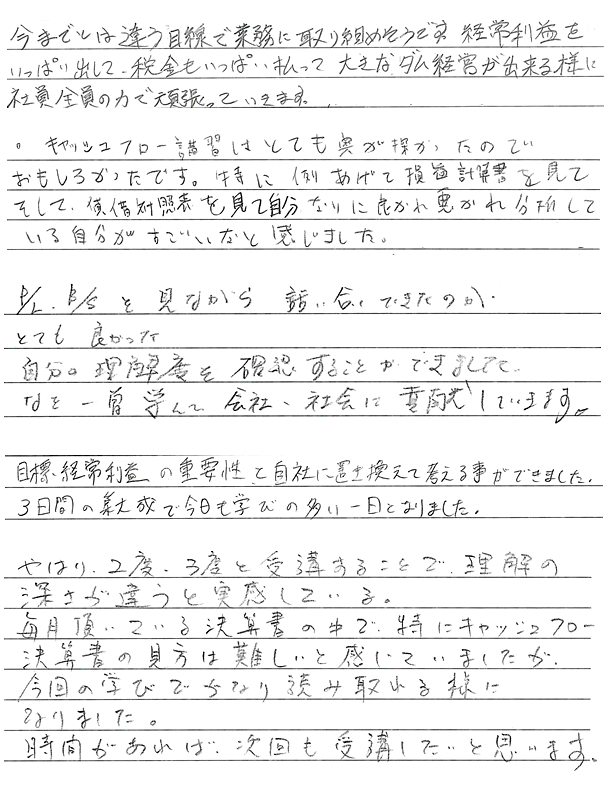 今までとは違う目線で業務に取り組めそうです。経常利益を
いっぱい出して、税金もいっぱい払って大きなダム経営が出来る様に
社員全員の力で頑張っていきます。
。キャッシュフロー講習はとても奥が深かったので
おもしろかったです。特に例あげて損益計算書を見て
そして、貸借対照表を見て自分なりに良かれ悪かれ分析して
いる自分がすごいいなと感じました。
P/L、B/Sを見ながら話し合いできたのが
とても良かった
自分の理解度を確認することができました。
なお一層学んで会社、社会に貢献していきます。
目標経常利益の重要性と自社に置き換えて考える事ができました。
3日間の集大成で今日も学びの多い一日となりました。
やはり、2度、3度と受講することで、理解の
深さが違うと実感している。
毎月頂いている決算書の中で、特にキャッシュフロー
決算書の見方は難しいと感じていましたが、
今回の学びでかなり読み取れる様に
なりました。
時間があれば、次回も受講したいと思います。